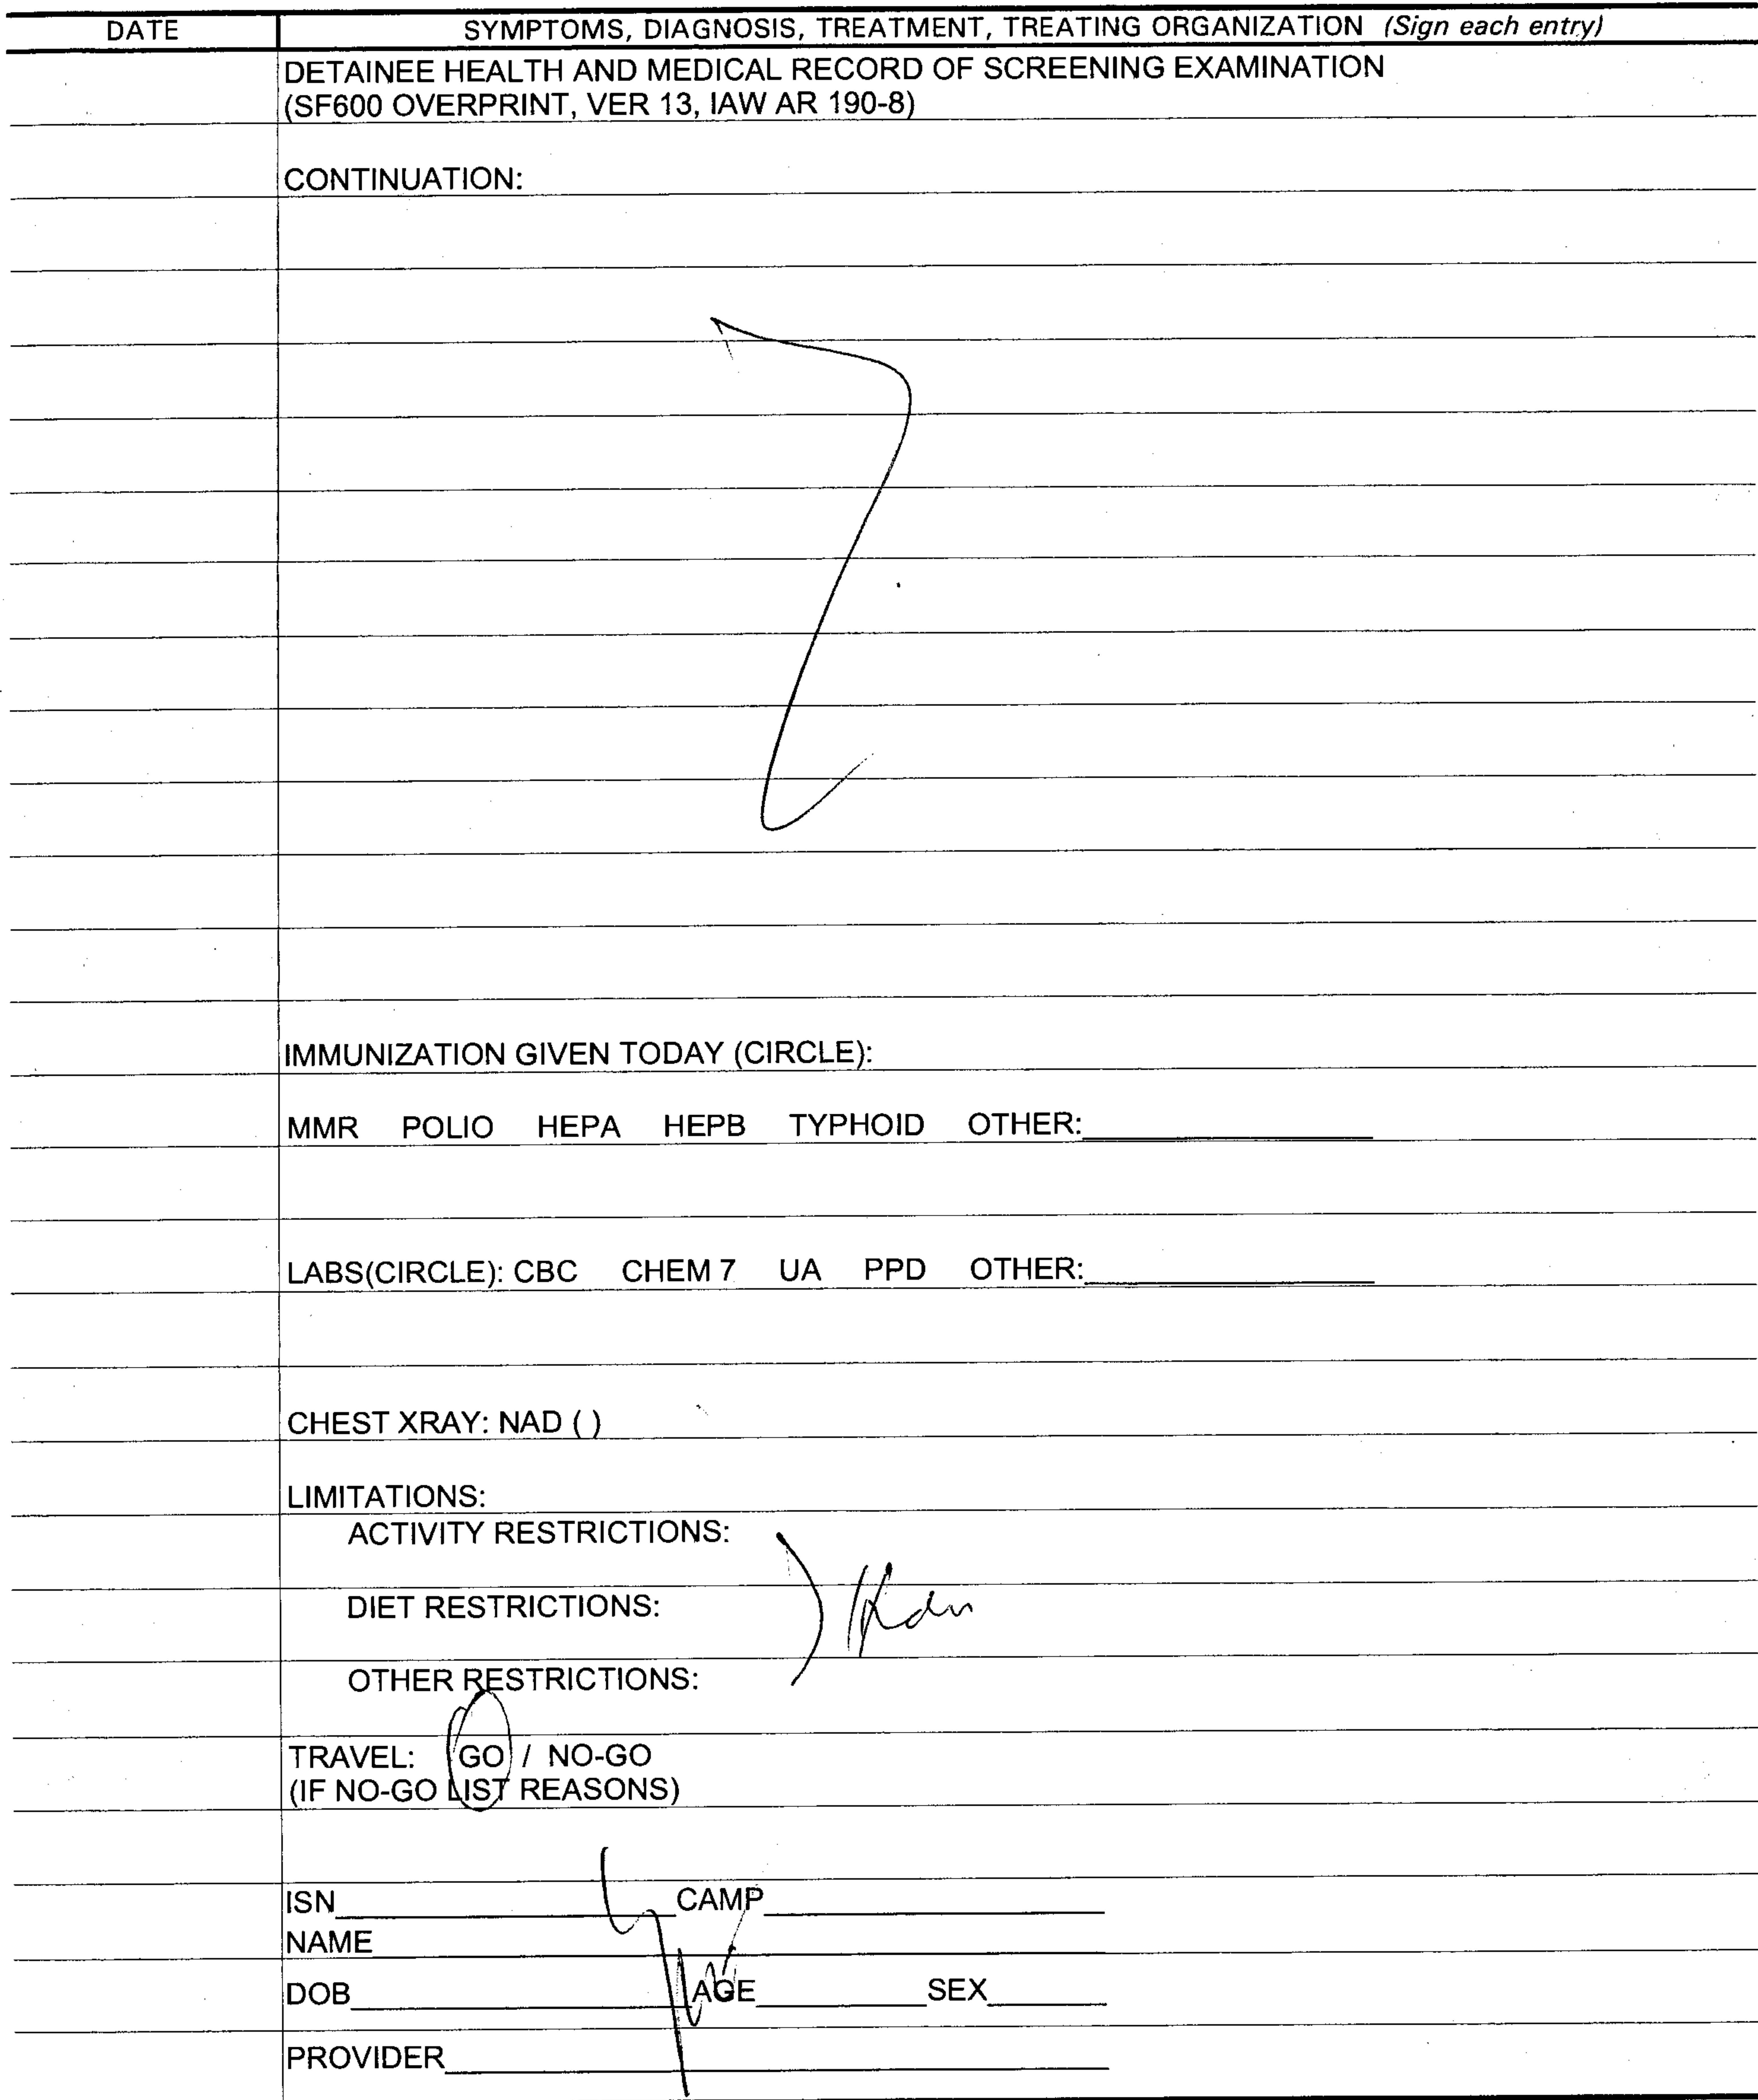 DATE SYMPTOMS, DIAGNOSIS, TREATMENT, TREATING ORGANIZATION (Sign each entry)
DETAINEE HEALTH AND MEDICAL RECORD OF SCREENING EXAMINATION
(SF600 OVERPRINT, VER 13, IAW AR 190-8)
CONTINUATION:
IMMUNIZATION GIVEN TODAY (CIRCLE):
MMR POLIO HEPA HEPB TYPHOID OTHER:
LABS(CIRCLE): CBC CHEM 7 UA PPD OTHER:
CHEST XRAY: NAD ( )
LIMITATIONS:
ACTIVITY RESTRICTIONS:
DIET RESTRICTIONS:
OTHER RESTRICTIONS:
TRAVEL: GO / NO-GO
(IF NO-GO LIST REASONS)
ISN CAMP
NAME
DOB AGE SEX
PROVIDER